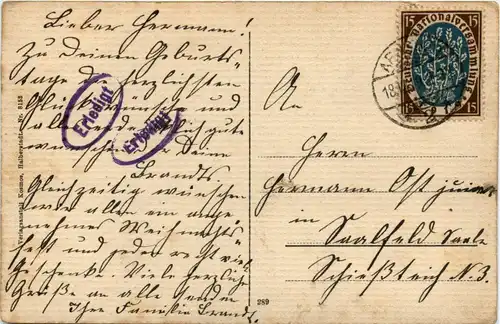 Lieber Hermann!
Zu Deinem Geburts=
tage die herzlichsten
Glückwünsche und
alles Gute
wünschen Deine
Brandts
Gleichzeitig wünschen
wir allen ein ange=
nehmes Weihnachts=
fest und recht viele
Geschenke. Viele herzliche
Grüße an alle senden
Ihre Familie Brandt.
Erledigt
Erledigt
Verlagsanstalt Kosmos, Halberstadt. Nr. 8153
289
15 15
Deutsche Nationalversammlung 1919
15 15
An
Herrn
Hermann Ost junior
in
Saalfeld Saale
Schießteich N. 3.